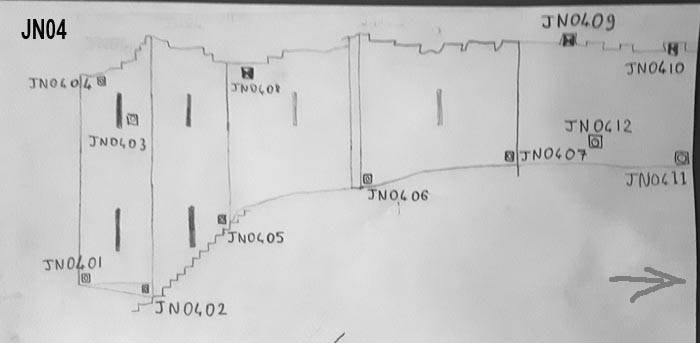 JN04
JN0409
JN0410
JN0404
JN0408
JN0403
JN0412
JN0407
JN0411
JN0406
JN0405
JN0401
JN0402